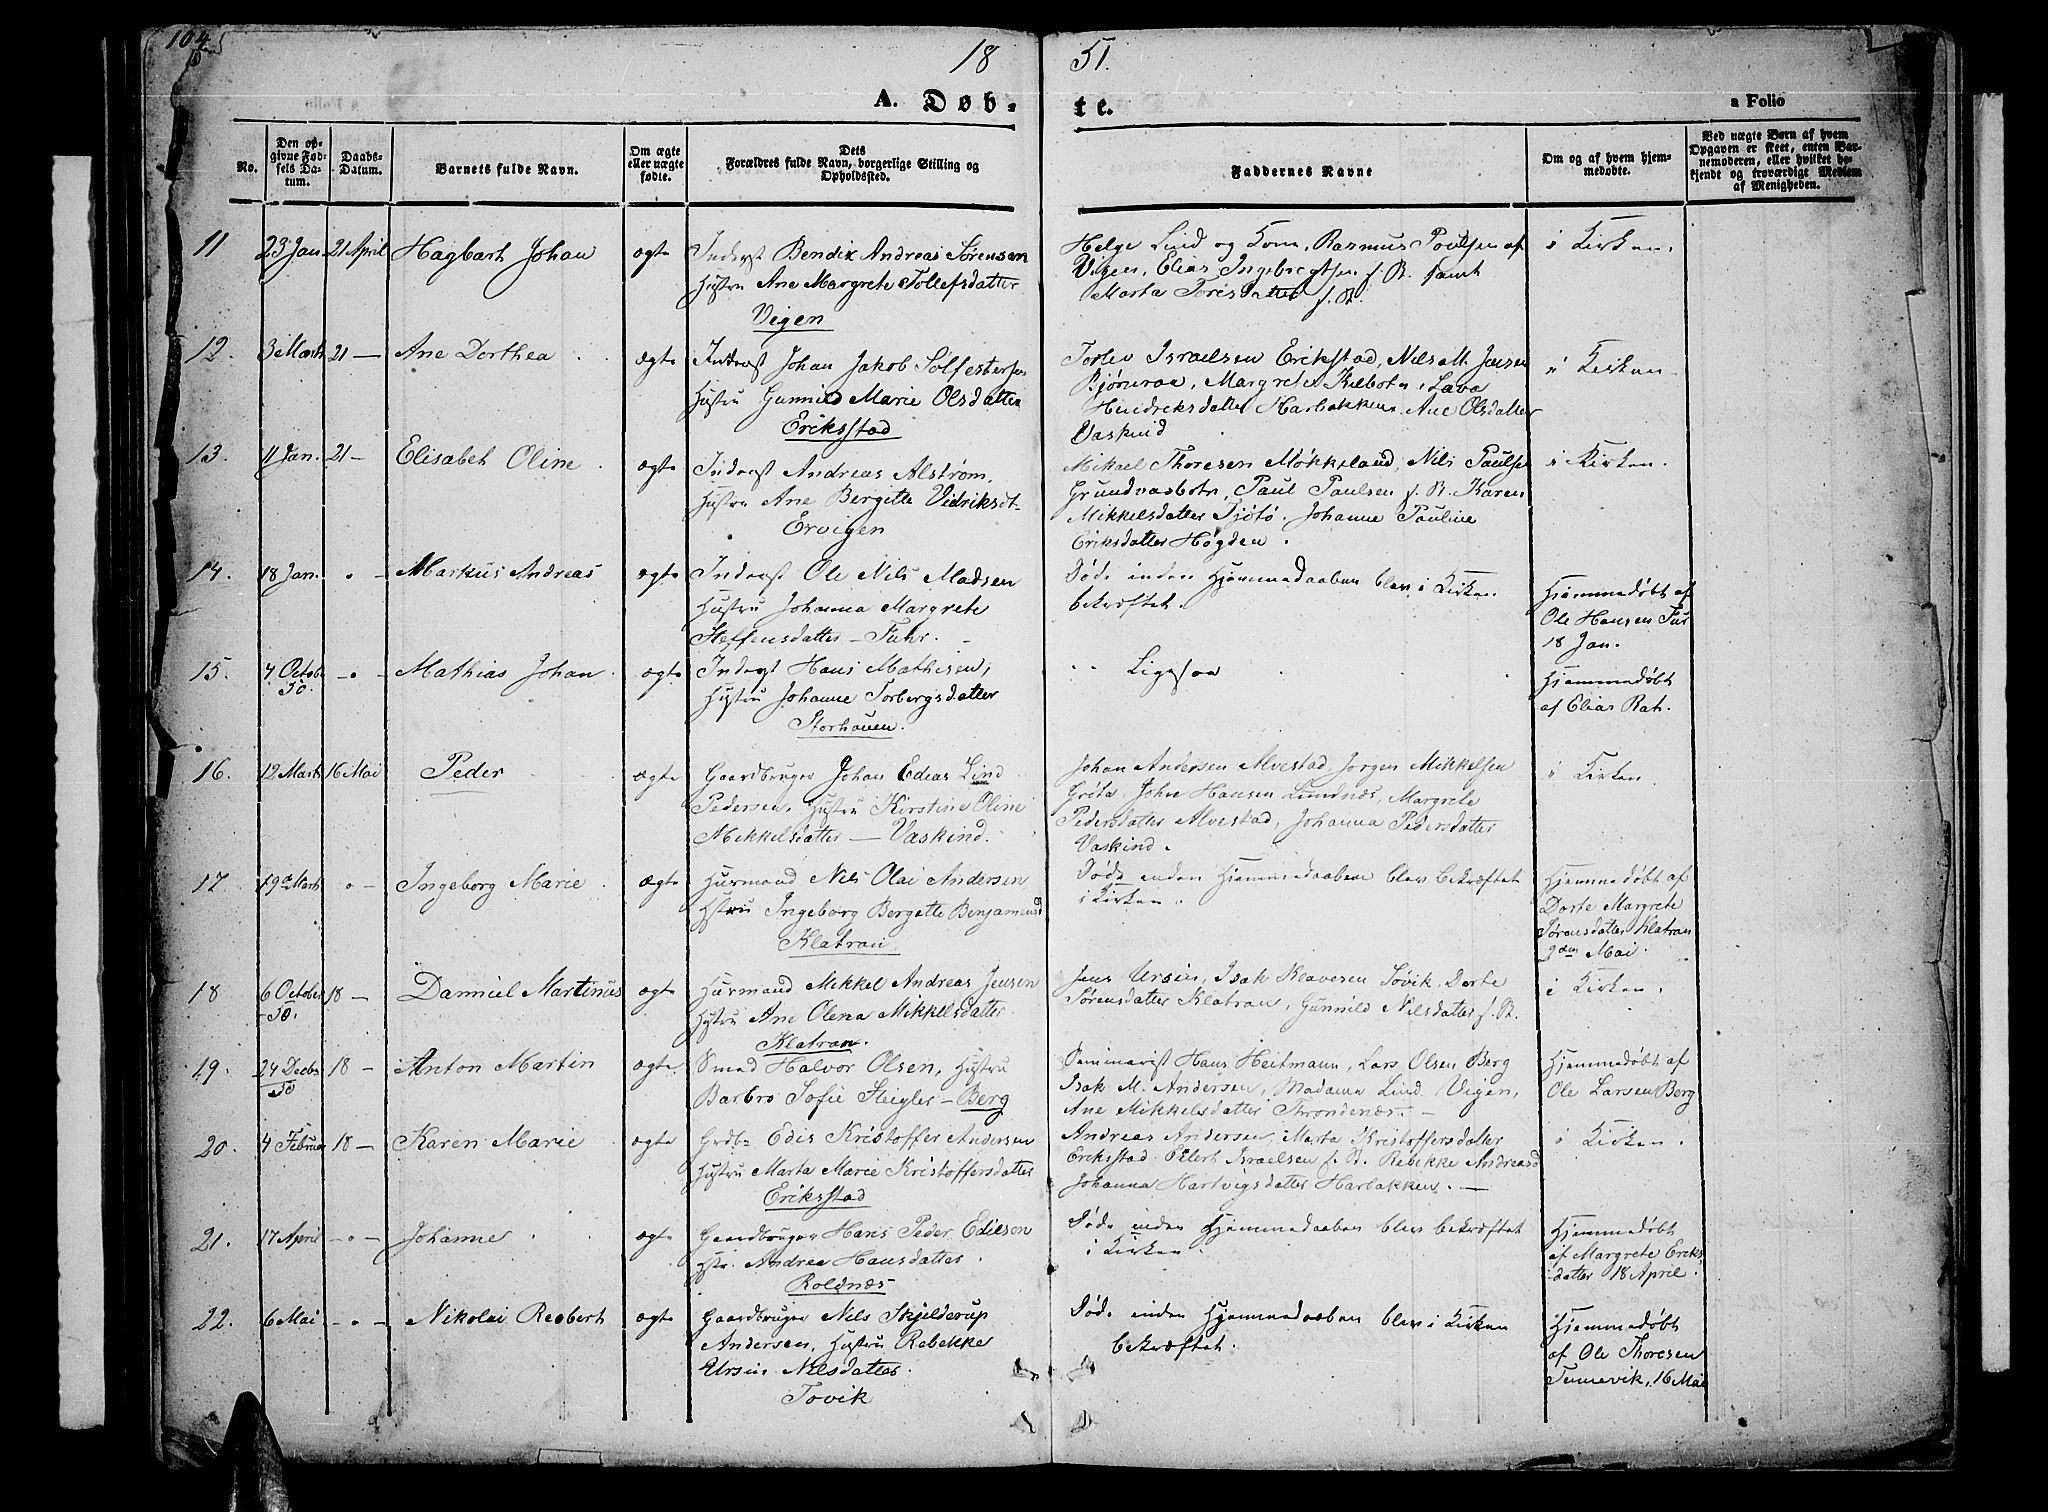 104
18 51.
A. Døb- te.
a Folio
No.
Den opgivne Fødsels Datum.
Daabs-Datum.
Barnets fulde Navn.
Om ægte eller uægte fødte.
Dets Forældres fulde Navn, borgerlige Stilling og Opholdssted.
Faddernes Navne
Om og af hvem hjemmedøbte.
Ved uægte Børn af hvem Opgaven er skeet, enten Barnemoderen, eller hvilket bekjendt og troværdigt Medlem af Menigheden.
11 23 Jan 21 April Hagbart Johan ægte
Inderst Bendix Andreas Sørensen
Hustru Ane Margrete Tollefsdatter
Vigen
Helge Lind og Kone, Rasmus Poulsen af
Vigen, Elias Ingebregtsen f. St. samt
Marta Toresdatter f. St.
i Kirken.
12. 3 Marts 21 — Ane Dorthea ægte
Inderst Johan Jakob Solfestersen
Hustru Gunnild Marie Olsdatter
Eriksstad
Torlev Israelsen Erikstad, Nils M. Jensen
Bjørnraa, Margrete Kilbotn, Lava
Hendreksdatter Harbakken, Ane Olsdatter
Vaskind
i Kirken
13. 11 Jan. 21 — Elisabet Oline ægte
Inderst Andreas Alstrøm,
Hustru Ane Bergitte Vidriksdt-
Ervigen
Mikael Thoresen Møkkeland, Nils Paulse
Grundnasbotn, Paul Paulsen f. St. Karen
Mikkelsdatter Tjøtø. Johanne Pauline
Eriksdatter Høgden.
i Kirken.
14. 18 Jan. " — Markus Andreas ægte
Inderst Ole Nils Madsen
Hustru Johanna Margrete
Steffensdatter — Fuhr.
Døde inden Hjemmedaaben blev i Kirken
bekræftet.
Hjemmedøbt af
Ole Hansen Fur
18 Jan.
15. 7 Octob 50. — " — Mathias Johan. ægte
Inderst Hans Mathisen,
Hustru Johanne Torbergsdatter
Storhauen.
Ligesaa
Hjemmedøbt
af Elias Rat.
16. 12 Marts 16 Mai Peder ægte
Gaardbruger Johan Edeas Lind
Pedersen, Hustru Kirstine Oline
Mekkelsdatter — Vaskind.
Johan Andersen Alvestad, Jørgen Mikkelsen
Grøtø, John Hansen Lundnæs, Margrete
Pedersdatter Alvestad, Johanna Pedersdatter
Vaskind.
i Kirken
17. 19d Marts " — Ingeborg Marie ægte
Husmand Nils Olai Andersen
Hstru Ingeborg Bergette Benjamensd
Klatran
Døde inden Hjemmedaaben blev bekræftet
i Kirken.
Hjemmedøbt af
Dorte Margrete
Sørensdatter Klatran
3den Mai.
18 6 October 50. 18 — Danniel Martinus ægte
Husmand Mekkel Andreas Jensen
Hstru Ane Olena Mikkelsdatter
Klatran.
Jens Ursin, Isak Klavesen Søvik, Dorte
Sørensdatter Klatran, Gunnild Nilsdatter f. St.
i Kirken.
19. 24 Decbr 50 18 — Anton Martin ægte
Smed Halvor Olsen, Hustru
Barbro Sofie Steigler — Berg
Seminarist Hans Heitmann, Lars Olsen Berg
Isak M. Andersen, Madame Lind Vigen,
Ane Mikkelsdatter Throndenæs. —
Hjemmedøbt af
Ole Larsen Berg
20. 4 Februar 18 — Karen Marie ægte
Grdb: Edis Kristoffer Andersen
Hustru Marta Marie Kristoffersdatter
Eriksstad
Andreas Andersen, Marta Kristoffersdatter
Eriksstad Elert Israelsen f. St. Rebekke Andreasd
Johanna Hartvigsdatter Harbakken. —
i Kirken.
21. 17 April — " — Johanne ægte
Gaardbruger Hans Peder Edisson
Hstr. Andrea Hansdatter
Roldnæs
Døde inden Hjemmedaaben blev bekræftet
i Kirken.
Hjemmedøbt
af Margrete Eriks
datter 18 April.
22. 6 Mai — " — Nikolai Reobert ægte
Gaardbruger Nils Skjelderup
Andersen, Hustru Rebekke
Ursin Nilsdatter.
Tovik
Døde inden Hjemmedaaben blev i Kirken
bekræftet.
Hjemmedøbt
af Ole Thoresen
Tennevik, 16 Mai